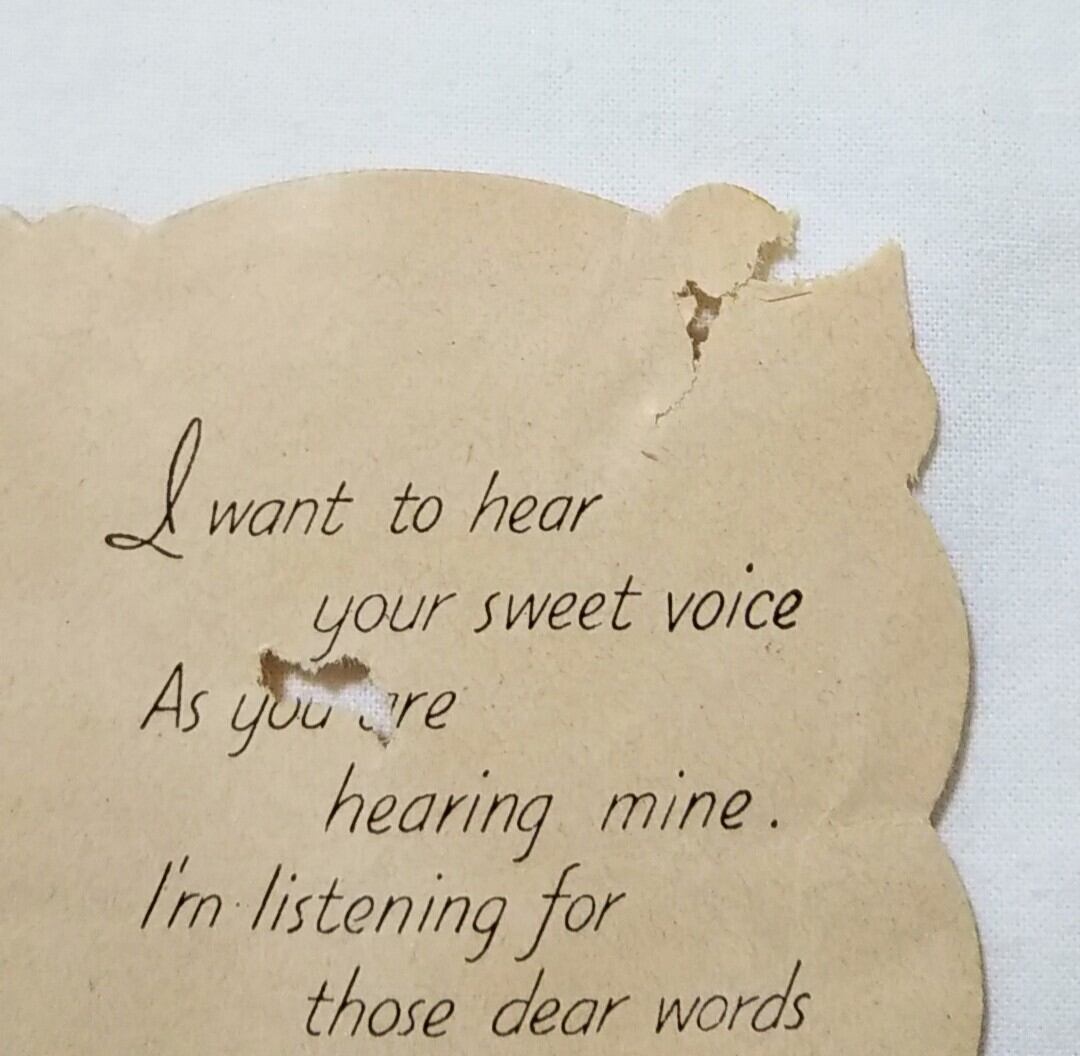 I want to hear
your sweet voice
As you are
hearing mine.
I'm listening for
those dear words